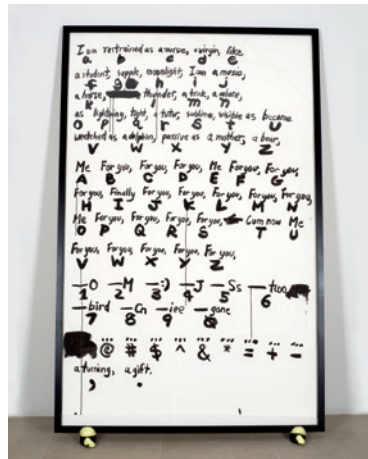 I am restrained as a nurse, a virgin, like
a b c d e
a student, supple, moonlight, I am a music,
f g h i j
a horse, thunder, a trick, a whore,
k l m n
as lightning, tight, a tutor, sublime, visible as because
o p q r s t u
wretched as a dolphin, passive as a mother, a bear,
v w x y z
Me For you, For you, For you, Me For you, For you,
A B C D E F G
For you, Finally For you, For you, For you, For you, For you,
H I J K L M N
Me For you, For you, For you, For you, Cum now Me
O P Q R S T U
For you, For you, For you, For you, For you,
V W X Y Z
—O —M —:) —J —Ss —two
1 2 3 4 5 6
—bird —Cn —iee —gone
7 8 9 0
@ # $ ^ & * = + -
a turning, a gift.
, .